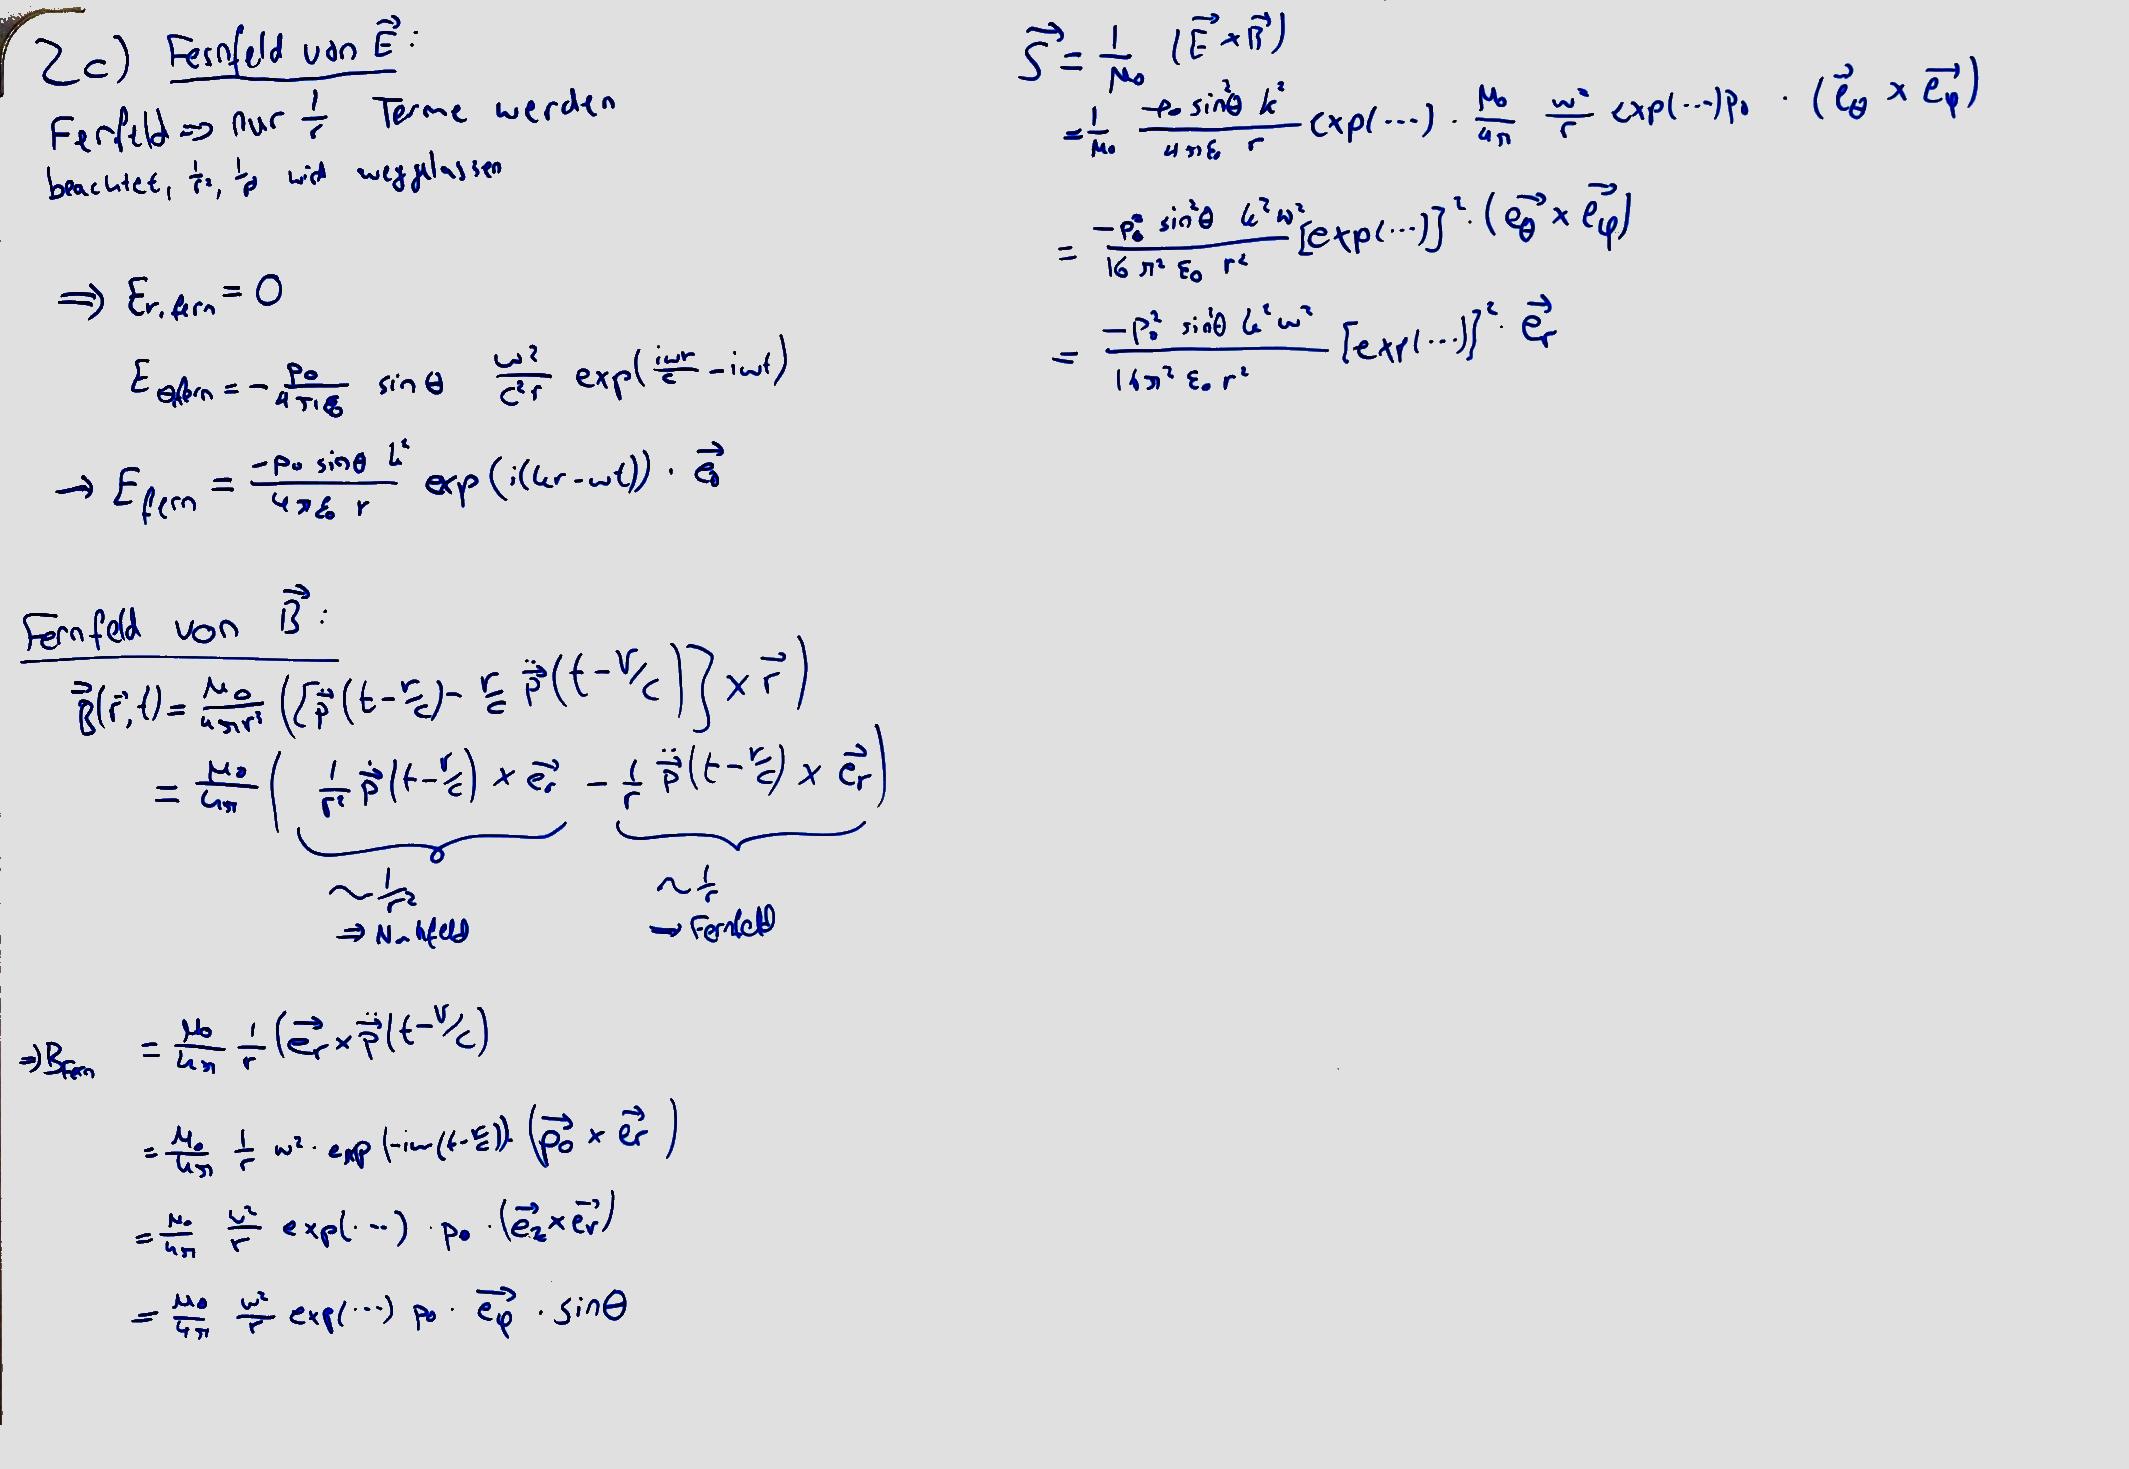 2c) Fernfeld von E⃗:
Fernfeld ⇒ nur 1/r Terme werden
beachtet, 1/r², 1/r³ wird weggelassen
⇒ E_{r,fern} = 0
E_{θ,fern} = - p₀/(4πε₀) sin θ ω²/(c²r) exp(iωr/c - iωt)
→ E_{fern} = (-p₀ sinθ k²)/(4πε₀ r) exp(i(kr-ωt)) · e⃗_θ
Fernfeld von B⃗:
B⃗(r⃗,t) = μ₀/(4πr³) ([p⃗̈(t-r/c) - r/c p⃗̈(t-r/c)] × r⃗)
= μ₀/(4π) (1/r² p⃗̇(t-r/c) × e⃗_r - 1/r p⃗̈(t-r/c) × e⃗_r)
~1/r² ~1/r
⇒ Nahfeld → Fernfeld
⇒ B_{Fern} = μ₀/(4π) 1/r (e⃗_r × p⃗̈(t-r/c)
= μ₀/(4π) 1/r ω² · exp(-iω(t-r/c)) (p⃗₀ × e⃗_r)
= μ₀/(4π) ω²/r exp(...) · p₀ · (e⃗_z × e⃗_r)
= μ₀/(4π) ω²/r exp(...) p₀ · e⃗_φ · sinθ
S⃗ = 1/μ₀ (E⃗ × B⃗)
= 1/μ₀ (-p₀ sin²θ k²)/(4πε₀ r) exp(...) · μ₀/(4π) ω²/r exp(...) p₀ · (e⃗_θ × e⃗_φ)
= (-p₀² sin²θ k² ω²)/(16π² ε₀ r²) [exp(...)]² · (e⃗_θ × e⃗_φ)
= (-p₀² sin²θ k² ω²)/(16π² ε₀ r²) [exp(...)]² · e⃗_r